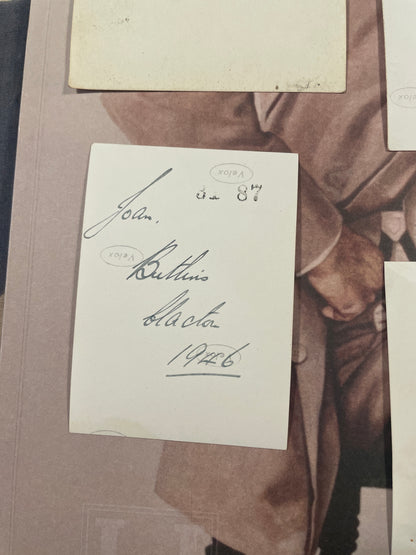 Velox
87
Joan.
Velox
Butlins
Clacton
1946
Velox